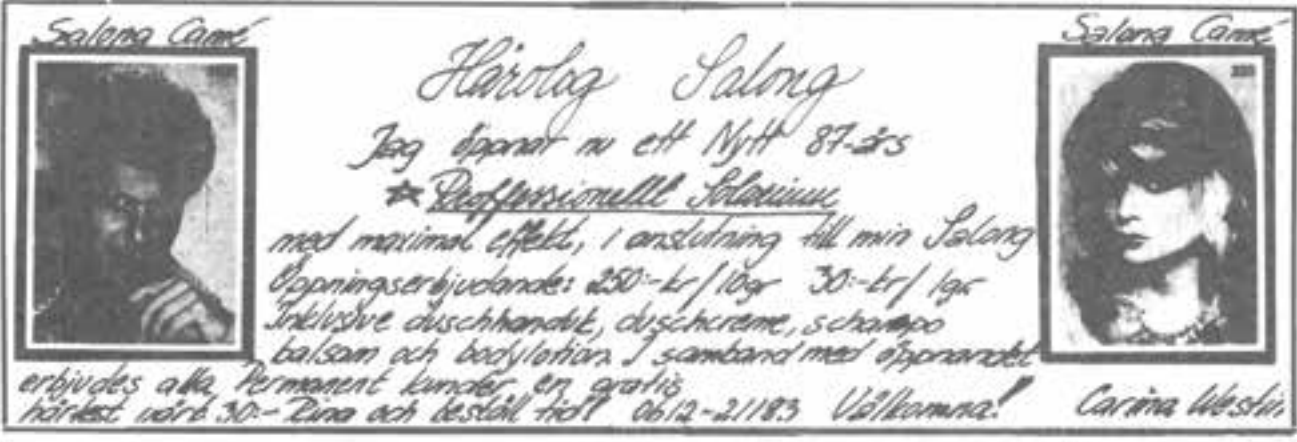 Salong Carmé
Salong Carmé
Hårolog Salong
Jag öppnar nu ett Nytt 87-års
☆ Proffessionellt Solarium
med maximal effekt, i anslutning till min Salong
Öppningserbjudande: 250:-kr/10gr 30:-kr/1gr
Inklusive duschhanduk, duschcreme, schampo
balsam och bodylotion. I samband med öppnandet
erbjudes alla Permanent kunder en gratis
hårtest värt 30:- Ring och beställ tid! 0612-21183 Välkomna!
Carina Westin